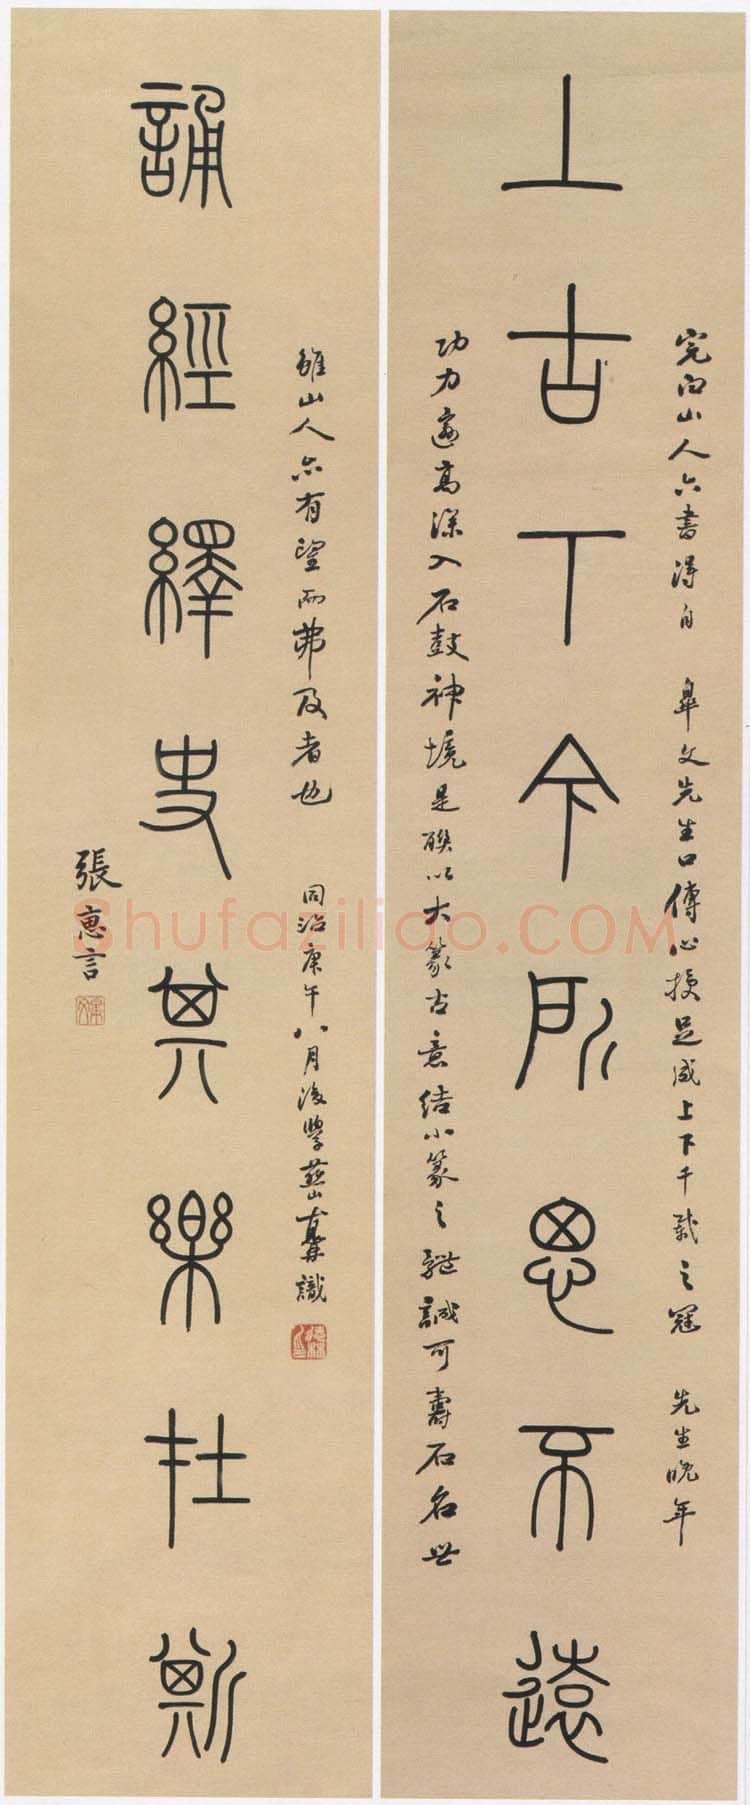 完白山人六書得自 皋文先生口傳心授足成上下千載之冠 先生晚年
上古丅今所思不遠
功力高深入石鼓神境是聯以大篆古意結小篆之誠可壽石名世
雖山人亦有望而弗及者也 同治庚午八月後學識
誦經繹史其樂在斯
張惠言
Shufaziliao.COM